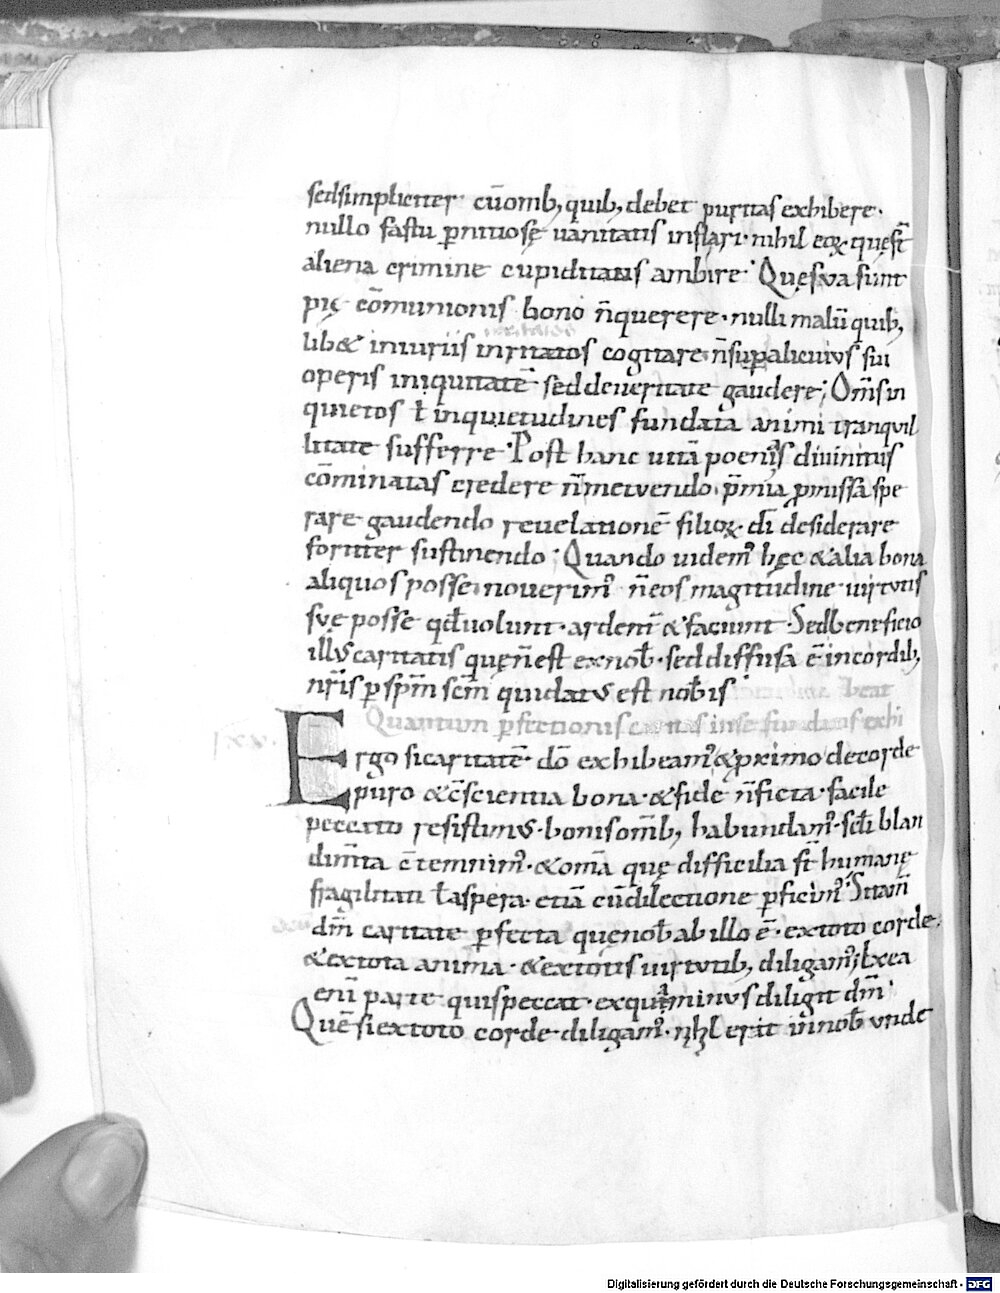 sedsimpliciter· cūomb; quib; debet puritas exhibere·
nullo fastu pnitiose uanitatis inflari· nihil eoꝝ quę st̄
aliena crimine cupiditatis ambire· Quę sua sunt
pię cōmunionis bono n̄ querere· nulli malū quib;
lib& iniuriis irritatos cogitare· n̄ sup alicuius sui
operis iniquitatē· sed de ueritate gaudere; Om̄s in
quietos ł inquietudines fundata animi tranquil
litate sufferre· Post hanc uitā poenas diuinitus
cōminatas credere n̄ metuendo· p̄mia ꝓmissa spe
rare gaudendo reuelationē filioꝝ· dī desiderare
fortiter sustinendo; Quando uidem᾽ hęc & alia bona
aliquos posse· nouerim᾽ n̄ eos magnitudine uirtutis
suę posse qđ uolunt· ardent & faciunt· Sed beneficio
illius caritatis quę n̄ est ex nob̄· sed diffusa ē in cordib;
nr̄is p sp̄m sc̄m qui datus est nobis
Quantum pfectionis caritas in se fundatis exhi
beat
Ergo si caritatē· dō exhibeam᾽ & proximo de corde
puro & c̄scientia bona· & fide n̄ ficta· facile
peccato resistimus· bonis omīb; habundam᾽· sc̄li blan
dimta c̄temnim᾽· & omā quę difficilia st̄ humanę
fragilitati ł aspera· etiā cū dilectione pficim᾽· Si tam̄
dm̄ caritate pfecta quę nob̄ ab illo ē· ex toto corde·
& ex tota anima· & ex totis uirtutib; diligam᾽;
enī parte quis peccat· ex qua minus diligit dm̄·
Quē si ex toto corde diligam᾽· nihil erit in nob̄ unde
Digitalisierung gefördert durch die Deutsche Forschungsgemeinschaft - DFG